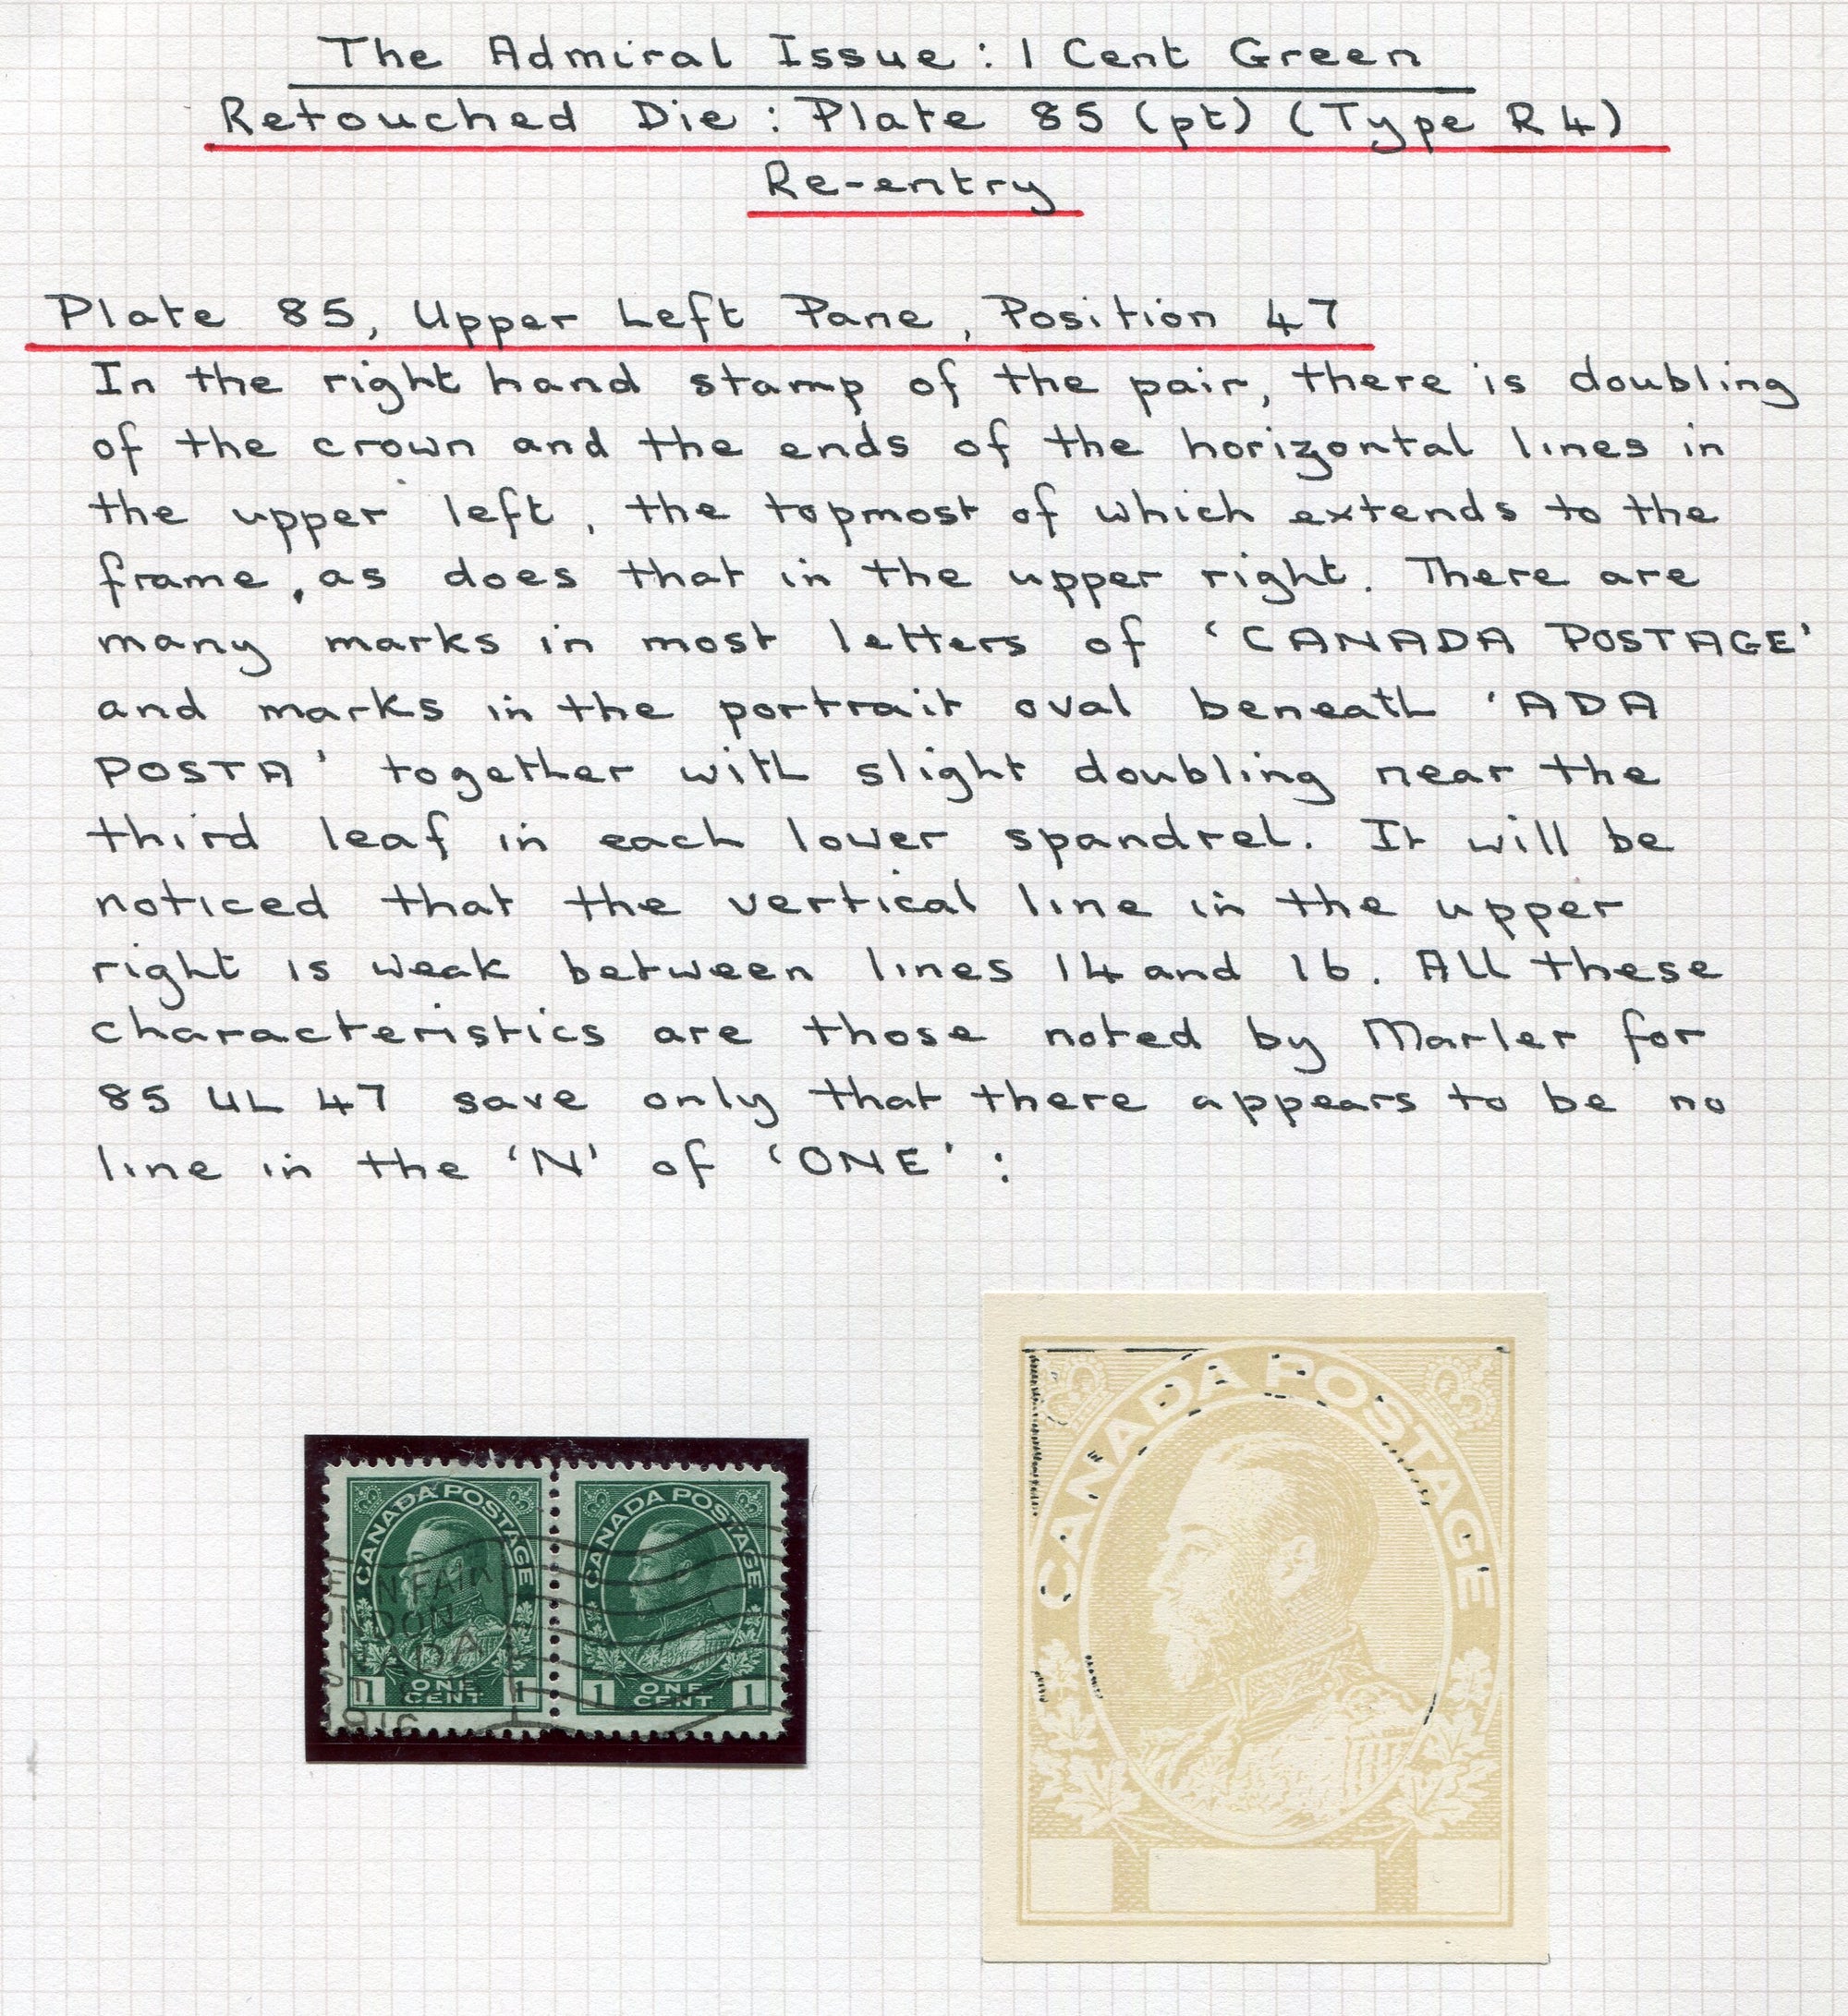 The Admiral Issue: 1 Cent Green
Retouched Die: Plate 85 (pt) (Type R4)
Re-entry
Plate 85, Upper Left Pane, Position 47
In the right hand stamp of the pair, there is doubling
of the crown and the ends of the horizontal lines in
the upper left, the topmost of which extends to the
frame, as does that in the upper right. There are
many marks in most letters of 'CANADA POSTAGE'
and marks in the portrait oval beneath 'ADA
POSTA' together with slight doubling near the
third leaf in each lower spandrel. It will be
noticed that the vertical line in the upper
right is weak between lines 14 and 16. All these
characteristics are those noted by Marler for
85 UL 47 save only that there appears to be no
line in the 'N' of 'ONE':
CANADA POSTAGE
CANADA POSTAGE
N FAIR
NDON
NADA
1 ONE CENT 1
1 ONE CENT 1
1916
CANADA POSTAGE